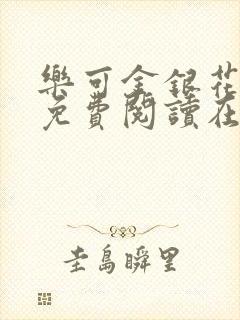 樂可金銀花
免費閱讀在
圭島瞬里